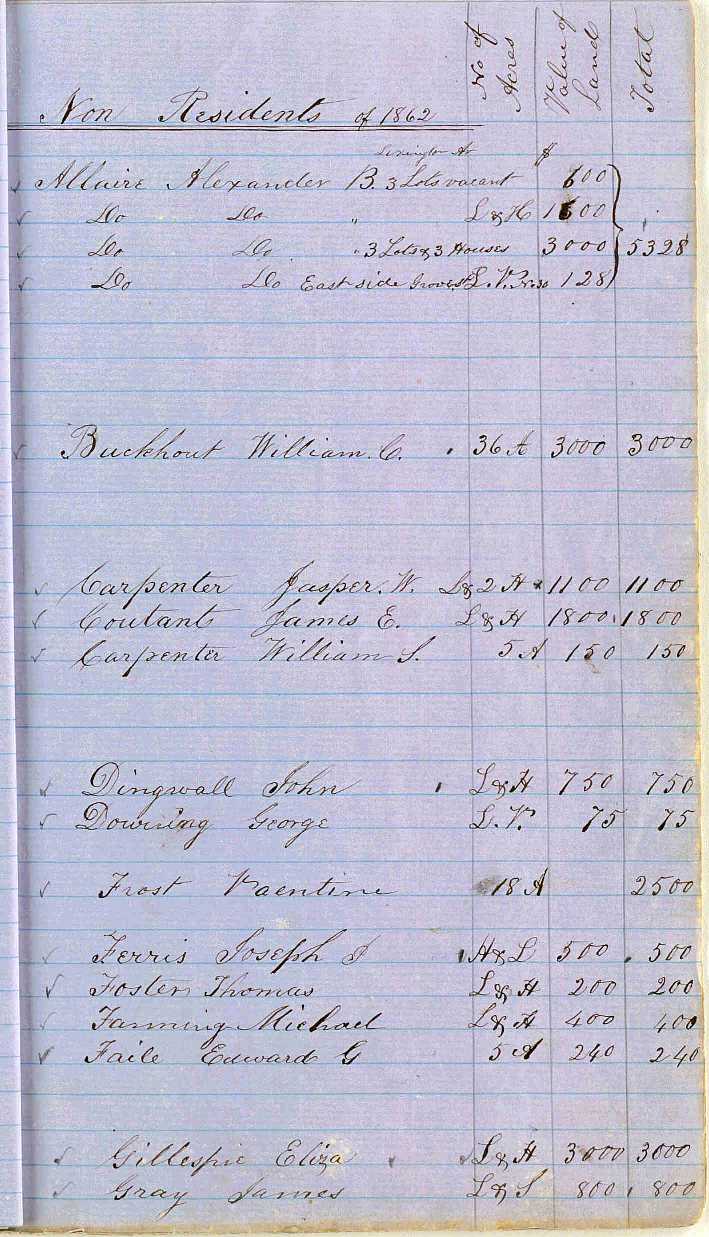 No of Acres
Value of Land
Total
Non Residents of 1862
Lexington Av $
Allaire Alexander B. 3 Lots vacant 600
Do Do " L & H 1600
Do Do " 3 Lots & 3 Houses 3000 5328
Do Do East side Grove St L. V. No 30 128
Buckhout William. C. 36 A 3000 3000
Carpenter Jasper. W. L & 2 H 1100 1100
Coutant James E. L & H 1800 1800
Carpenter William S. 5 A 150 150
Dingwall John L & H 750 750
Downing George L. V. 75 75
Frost Vaentine 18 A 2500
Ferris Joseph J H & L 500 500
Foster Thomas L & H 200 200
Fanning Michael L & H 400 400
Faile Edward G 5 A 240 240
Gillespie Eliza L & H 3000 3000
Gray James L & S 800 800